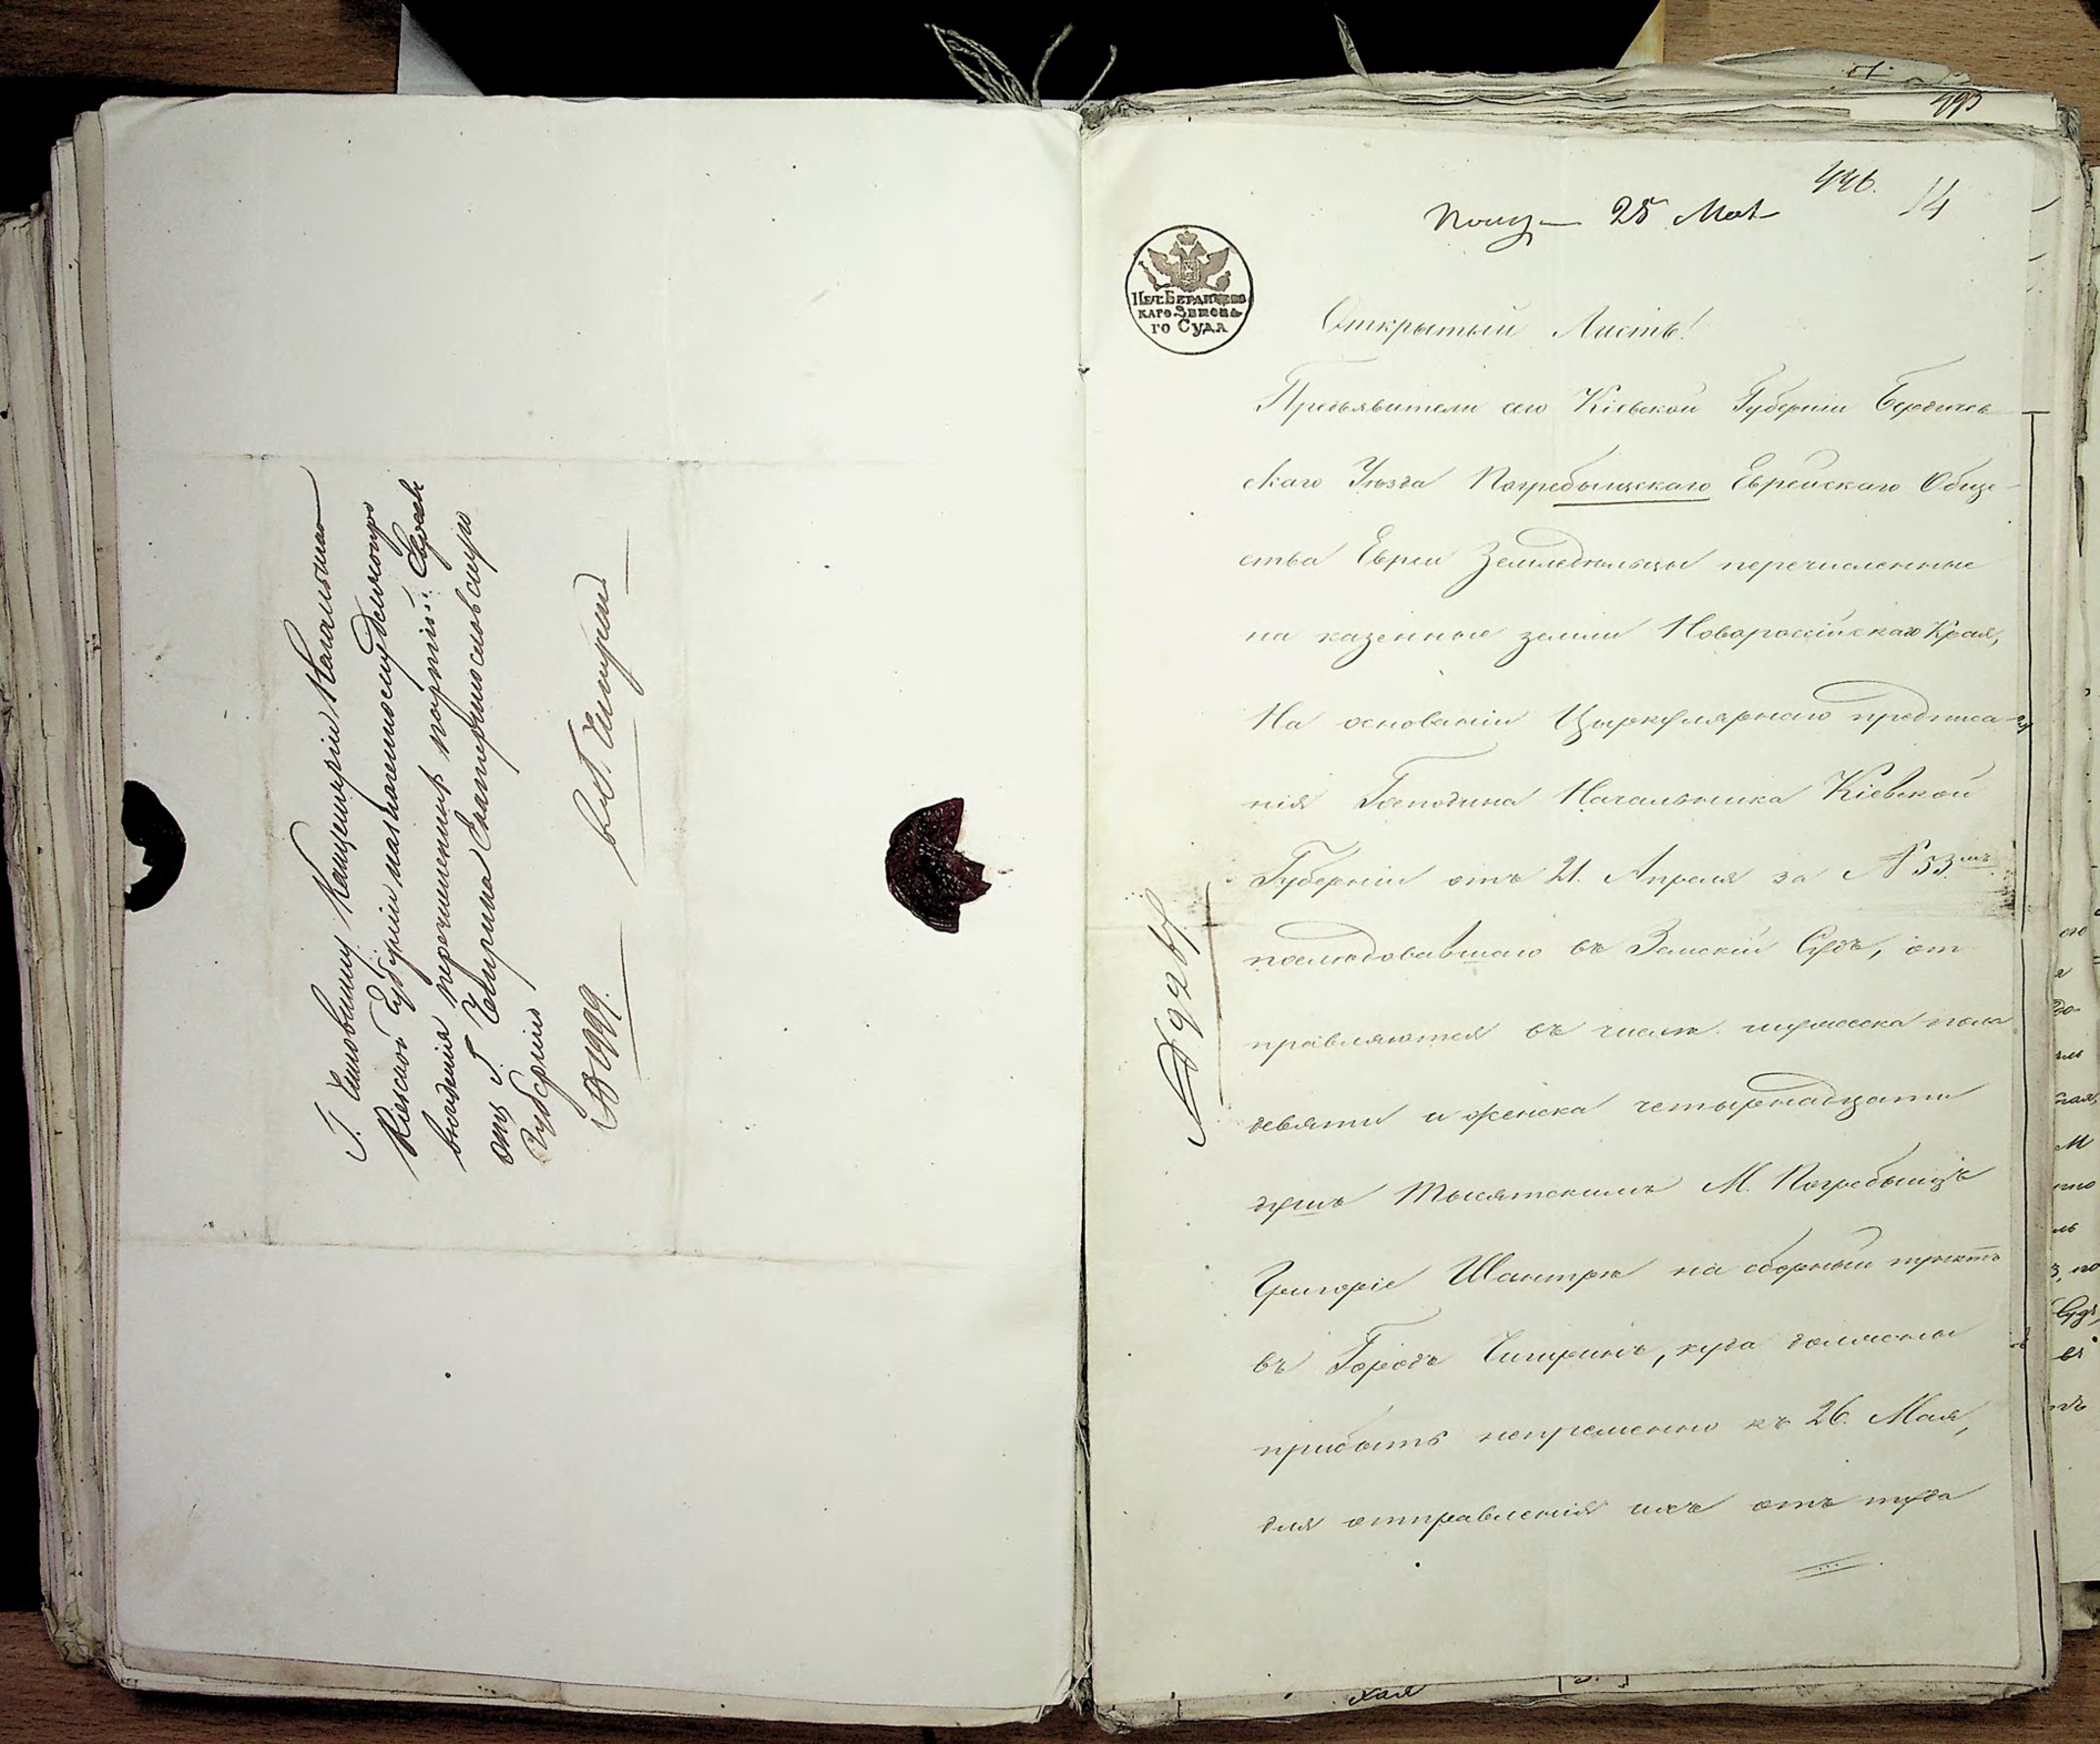 Г. Чиновнику Канцелярии Начальника
Киевской Губернии назначенному для
выведения перечисленных партий Евреев
от Г. Чигирина Екатеринославскую
Губернию
№ 1999.
в г. Чигирин
446.
14
Получ 25 Мая
Печ. Бердичев
скаго Земска
го Суда
Открытый Листъ!
Предъявители сего Кіевской Губерніи Бердичев
скаго Уѣзда Погребыщскаго Еврейскаго Обще-
ства Евреи Земледѣльцы перечисленные
на казенные земли Новороссійскаго Края,
На основаніи Циркулярнаго предписа-
нія Господина Начальника Кіевской
Губерніи отъ 21. Апреля за № 53.
послѣдовавшаго въ Земскій Судъ, от
правляются въ числѣ мужеска пола
девяти и женска четырнадцати
душъ Тысятскимъ М. Погребыщъ
Григоріе на сборный пунктъ
въ Городъ Чигиринъ, куда должны
прибыть непременно къ 26. Мая,
для отправленія ихъ отъ туда